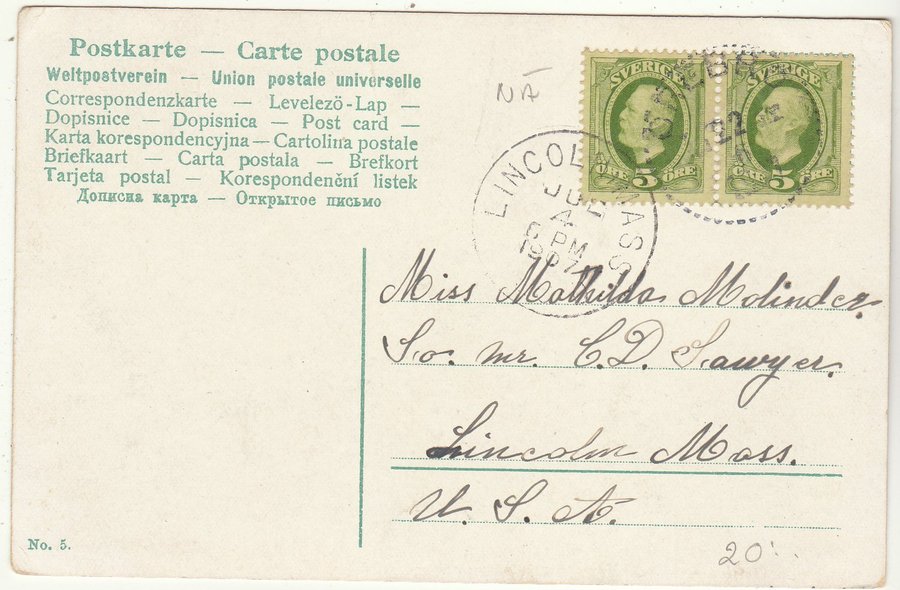 Postkarte — Carte postale
Weltpostverein — Union postale universelle
Correspondenzkarte — Levelező-Lap —
Dopisnice — Dopisnica — Post card —
Karta korespondencyjna — Cartolina postale
Briefkaart — Carta postala — Brefkort
Tarjeta postal — Korespondenční listek
Дописна карта — Открытое письмо
NÄ
SVERIGE SVERIGE
ÖRE 5 ÖRE ÖRE 5 ÖRE
LINCOLN MASS
JUL
4
6 PM
1907
Miss Mathilda Molinder.
So. mr. C. D. Sawyer.
Lincoln Mass.
U. S. A.
No. 5.
20:-